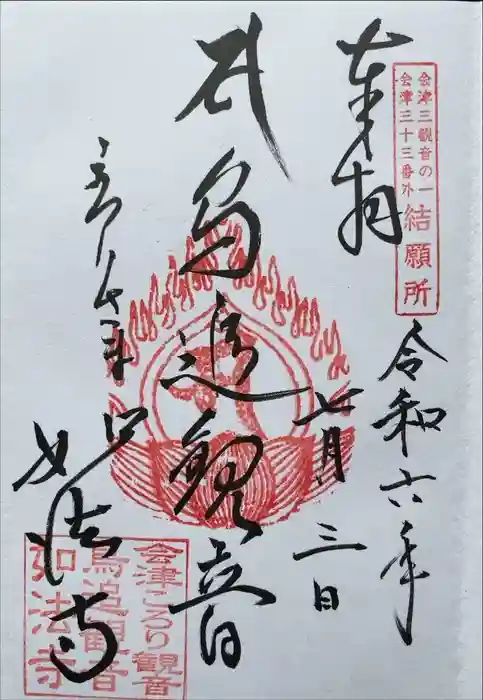 会津三観音の一
会津三十三番外
結願所
奉拝
令和六年
七月
三日
鳥追観音
如法寺
会津ころり観音
鳥追観音
如法寺